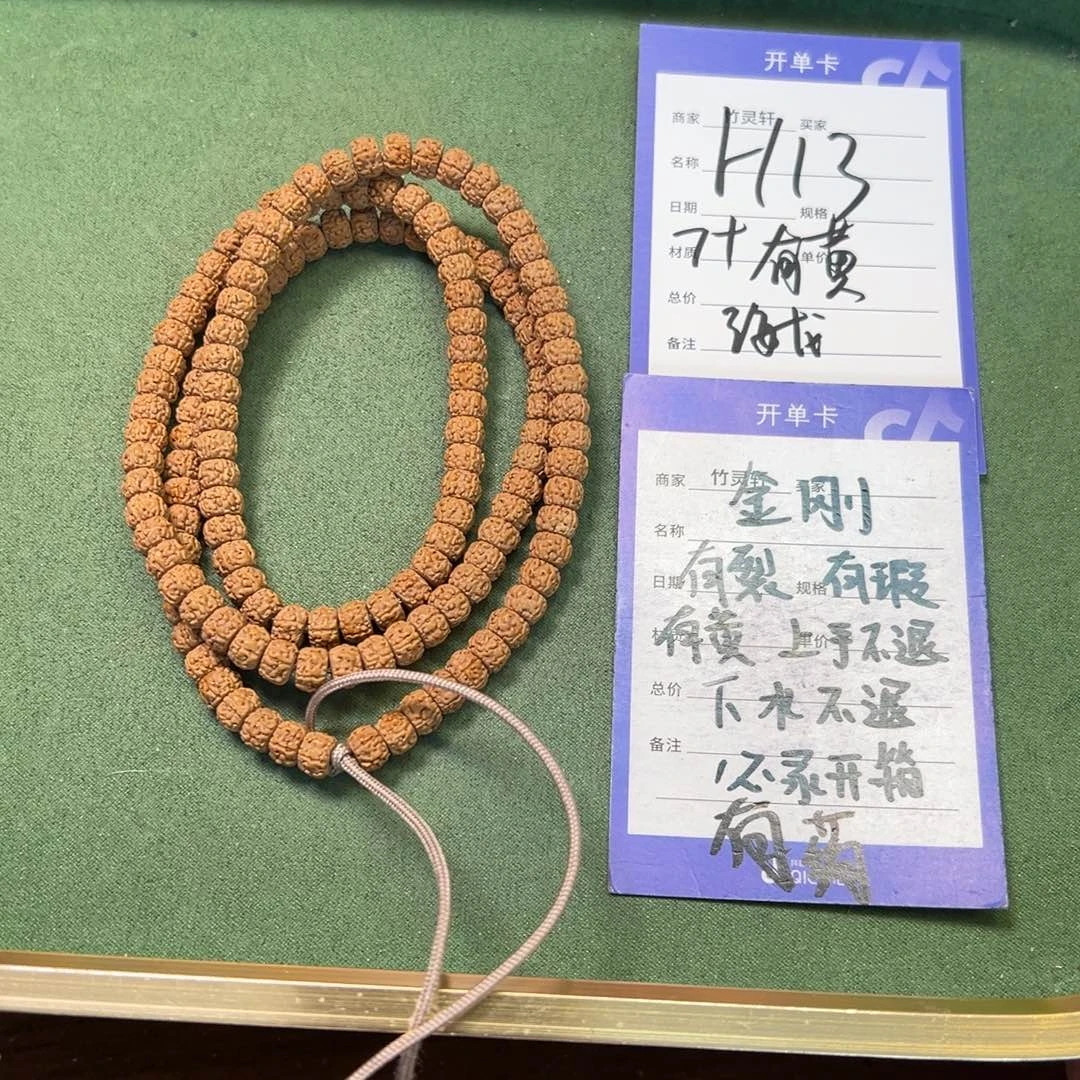 开单卡
商家 竹灵轩 买家
名称
H13
日期 规格
材质 单价
有黄
总价
备注
开单卡
商家 竹灵轩
金刚
名称
日期 规格
有裂 有瑕
有黄 上手不退
总价
下水不退
备注
必录开箱
有